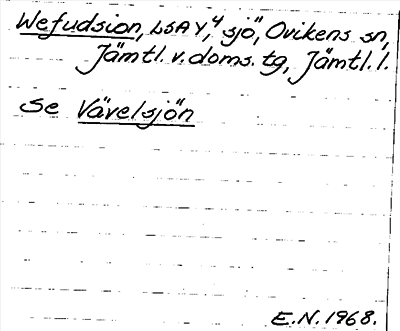 Wefudsion, LSA Y, 4 "sjö", Ovikens sn,
Jämtl. v. doms. tg, Jämtl. l.
Se Vävelsjön
E.N. 1968.